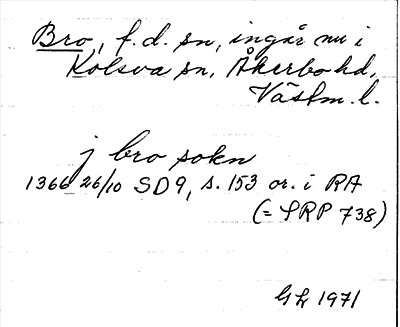 Bro, f.d. sn, ingår nu i
Kolsva sn, Åkerbo hd,
Västm. l.
j bro sokn
1366 26/10 SD9, s. 153 or. i RA
(= SRP 738)
GL 1971